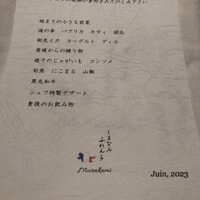 始まりの小さな前菜
海の幸 パプリカ キウイ
剣先イカ ヨーグルト ディル
愛媛からの贈り物
親子のじゃがいも コンソメ
旬魚 にこまる 山椒
黒毛和牛
シェフ特製デザート
食後のお飲み物
しまなみ
ふれんち
Murakami
Juin, 2023